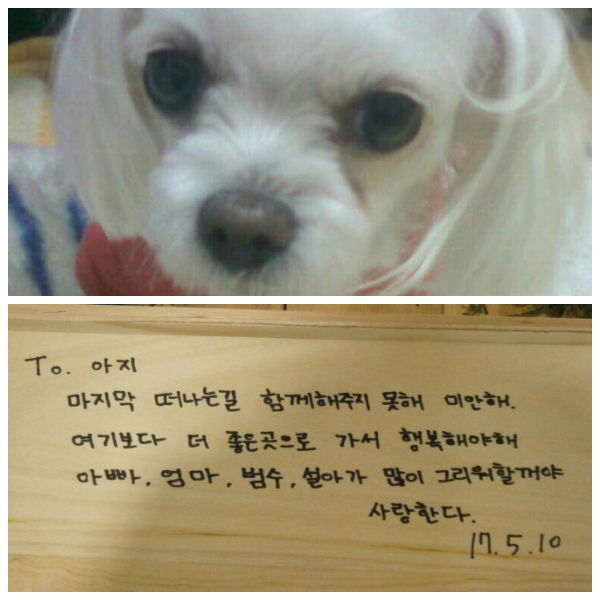 To. 아지
마지막 떠나는길 함께해주지 못해 미안해.
여기보다 더 좋은곳으로 가서 행복해야해
아빠, 엄마, 범수, 설아가 많이 그리워할꺼야
사랑한다.
17.5.10